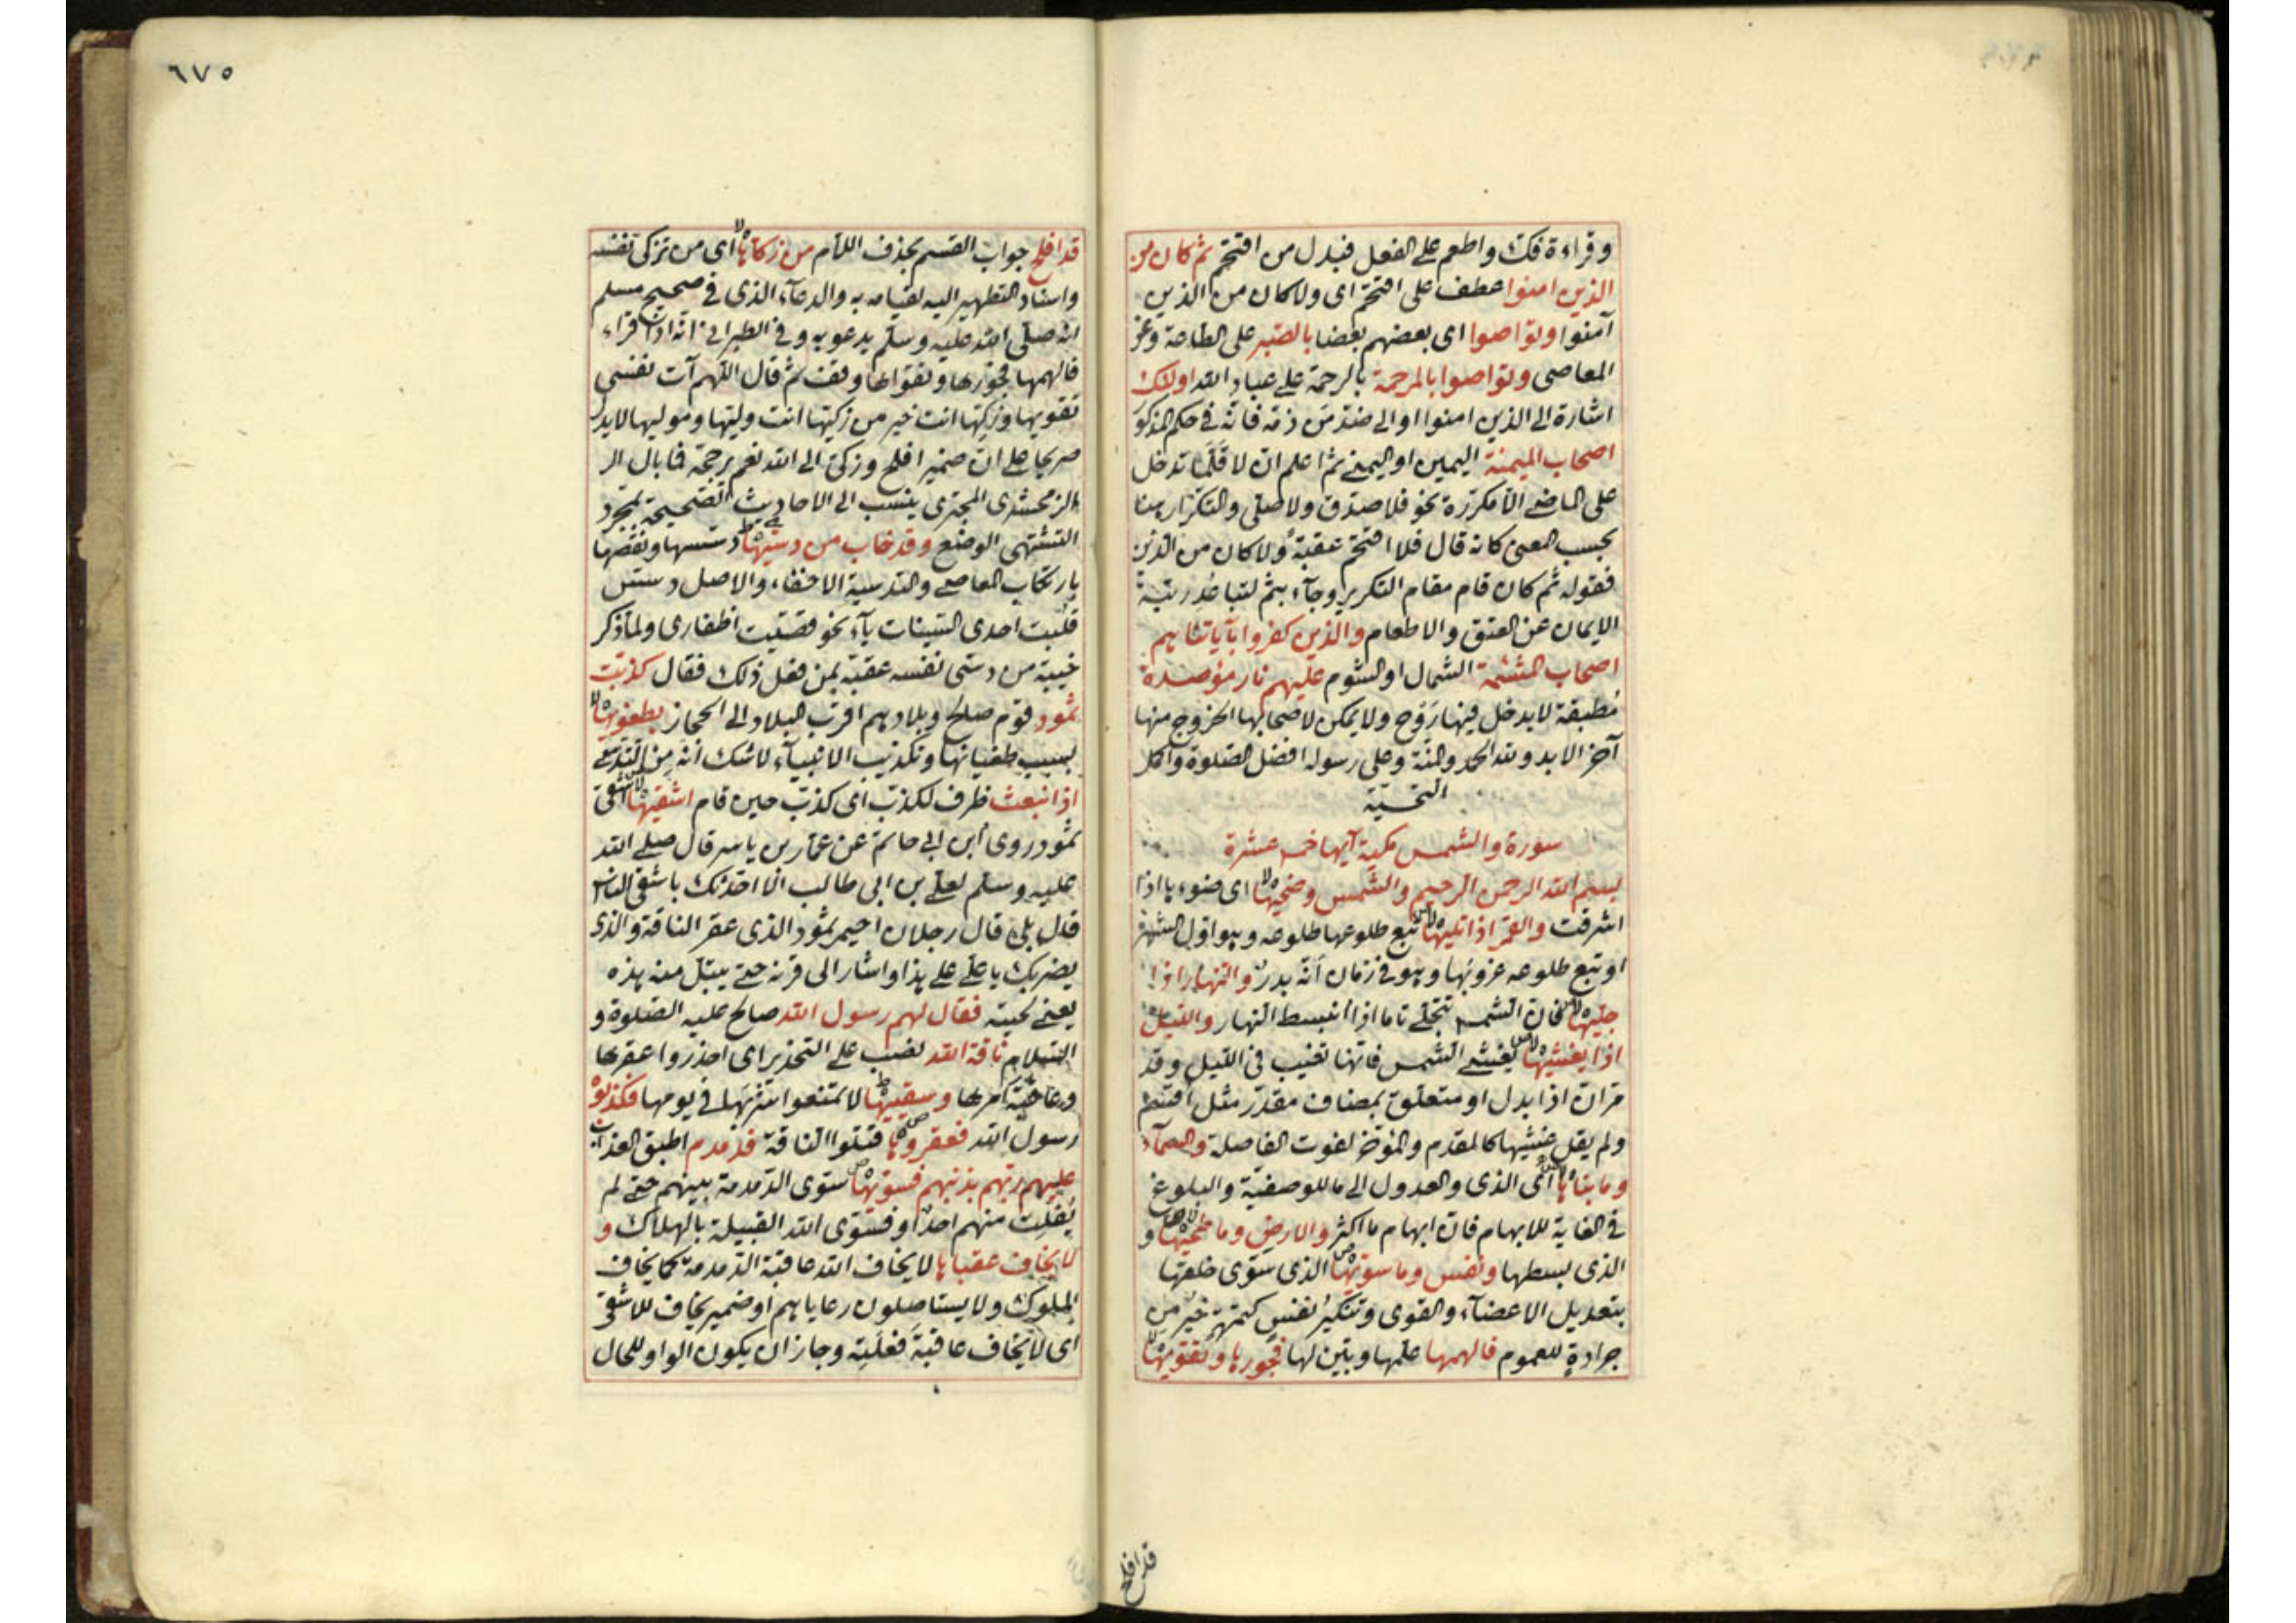 وقراءة فك واطعم على الفعل فبدل من اقتحم ثم كان من
الذين امنوا عطف على اقتحم اى ولا كان من الذين
آمنوا وتواصوا اى بعضهم بعضا بالصبر على الطاعة وعن
المعاصى وتواصوا بالمرحمة بالرحمة على عباد الله اولئك
اشارة الى الذين امنوا او الى ضد من ذمه فانه فى حكم المذكور
اصحاب الميمنة اليمين او اليمن ثم اعلم ان لا قلما تدخل
على الماضى الا مكررة نحو فلا صدق ولا صلى والتكرار هنا
بحسب المعنى كانه قال فلا اقتحم عقبة ولا كان من الذين
فقوله ثم كان قام مقام التكرير وجاء بثم لتباعد رتبة
الايمان عن العتق والاطعام والذين كفروا بآياتنا هم
اصحاب المشئمة الشمال او الشوم عليهم نار مؤصدة
مطبقة لا يدخل فيها روح ولا يمكن لاصحابها الخروج منها
آخر الابد ولله الحمد والمنة وعلى رسوله افضل الصلوة واكمل
التحية
سورة والشمس مكية آيها خمس عشرة
بسم الله الرحمن الرحيم والشمس وضحيها اى ضوءها اذا
اشرقت والقمر اذا تليها تبع طلوعها طلوعه وهو اول الشهر
او تبع طلوعه غروبها وهو فى زمان انه بدر والنهار اذا
جليها فان الشمس تتجلى تاما اذا انبسط النهار والليل
اذا يغشيها يغشى الشمس فانها تغيب فى الليل وقد
مر ان اذا بدل او متعلق بمضاف مقدر مثل اقسم
ولم يقل غشيها كالمقدم والمؤخر لفوت الفاصلة والسماء
وما بناها اى الذى والعدول الى ما للوصفية والبلوغ
فى الغاية للابهام فان ابهام ما اكثر والارض وما طحيها و
الذى بسطها ونفس وما سويها الذى سوى خلقها
بتعديل الاعضاء والقوى وتنكير نفس كتمرة خير من
جرادة للعموم فالهمها علمها وبين لها فجورها وتقويها
قد افلح
٦٧٥
قد افلح جواب القسم بحذف اللام من زكاها اى من تزكى نفسه
واسناد التطهير اليه لقيامه به والدعاء الذى فى صحيح مسلم
انه صلى الله عليه وسلم يدعو به وفى الطبرانى انه اذا قراء
فالهمها فجورها وتقواها وقف ثم قال اللهم آت نفسى
تقويها وزكها انت خير من زكيها انت وليها وموليها لا يدل
صريحا على ان ضمير افلح وزكى الى الله نعم يرجحه فما بال الر
الزمحشرى المجترى ينسب الى الاحاديث الصحيحة بمجرد
التشهى الوضع وقد خاب من دسيها دسسها ونقصها
بارتكاب المعاصى والتدسية الاخفاء والاصل دسس
قلبت احدى السينات ياء نحو قصيت اظفارى ولما ذكر
خيبة من دسى نفسه عقبه بمن فعل ذلك فقال كذبت
ثمود قوم صالح وبلادهم اقرب البلاد الى الحجاز بطغويها
بسبب طغيانها وتكذيب الانبياء لا شك انه من
اذ انبعث ظرف لكذبت اى كذبت حين قام اشقيها اشقى
ثمود روى ابن ابى حاتم عن عمار بن ياسر قال صلى الله
عليه وسلم لعلى بن ابى طالب الا احدثك باشقى الناس
قال بلى قال رجلان احيمر ثمود الذى عقر الناقة والذى
يضربك يا على على هذا واشار الى قرنه حتى يبتل منه هذه
يعنى لحيته فقال لهم رسول الله صالح عليه الصلوة و
السلام ناقة الله نصب على التحذير اى احذروا عقرها
وسقيها لا تمنعوا شربها فى يومها فكذبوه
رسول الله فعقروها قتلوا الناقة فدمدم اطبق العذاب
عليهم ربهم بذنبهم فسويها سوى الدمدمة بينهم حتى لم
يفلت منهم احد او فسوى الله القبيلة بالهلاك و
لا يخاف عقباها لا يخاف الله عاقبة الدمدمة كما يخاف
الملوك ولا يستاصلون رعاياهم او ضمير يخاف للاشقى
اى لا يخاف عاقبة فعلته وجاز ان يكون الواو للحال